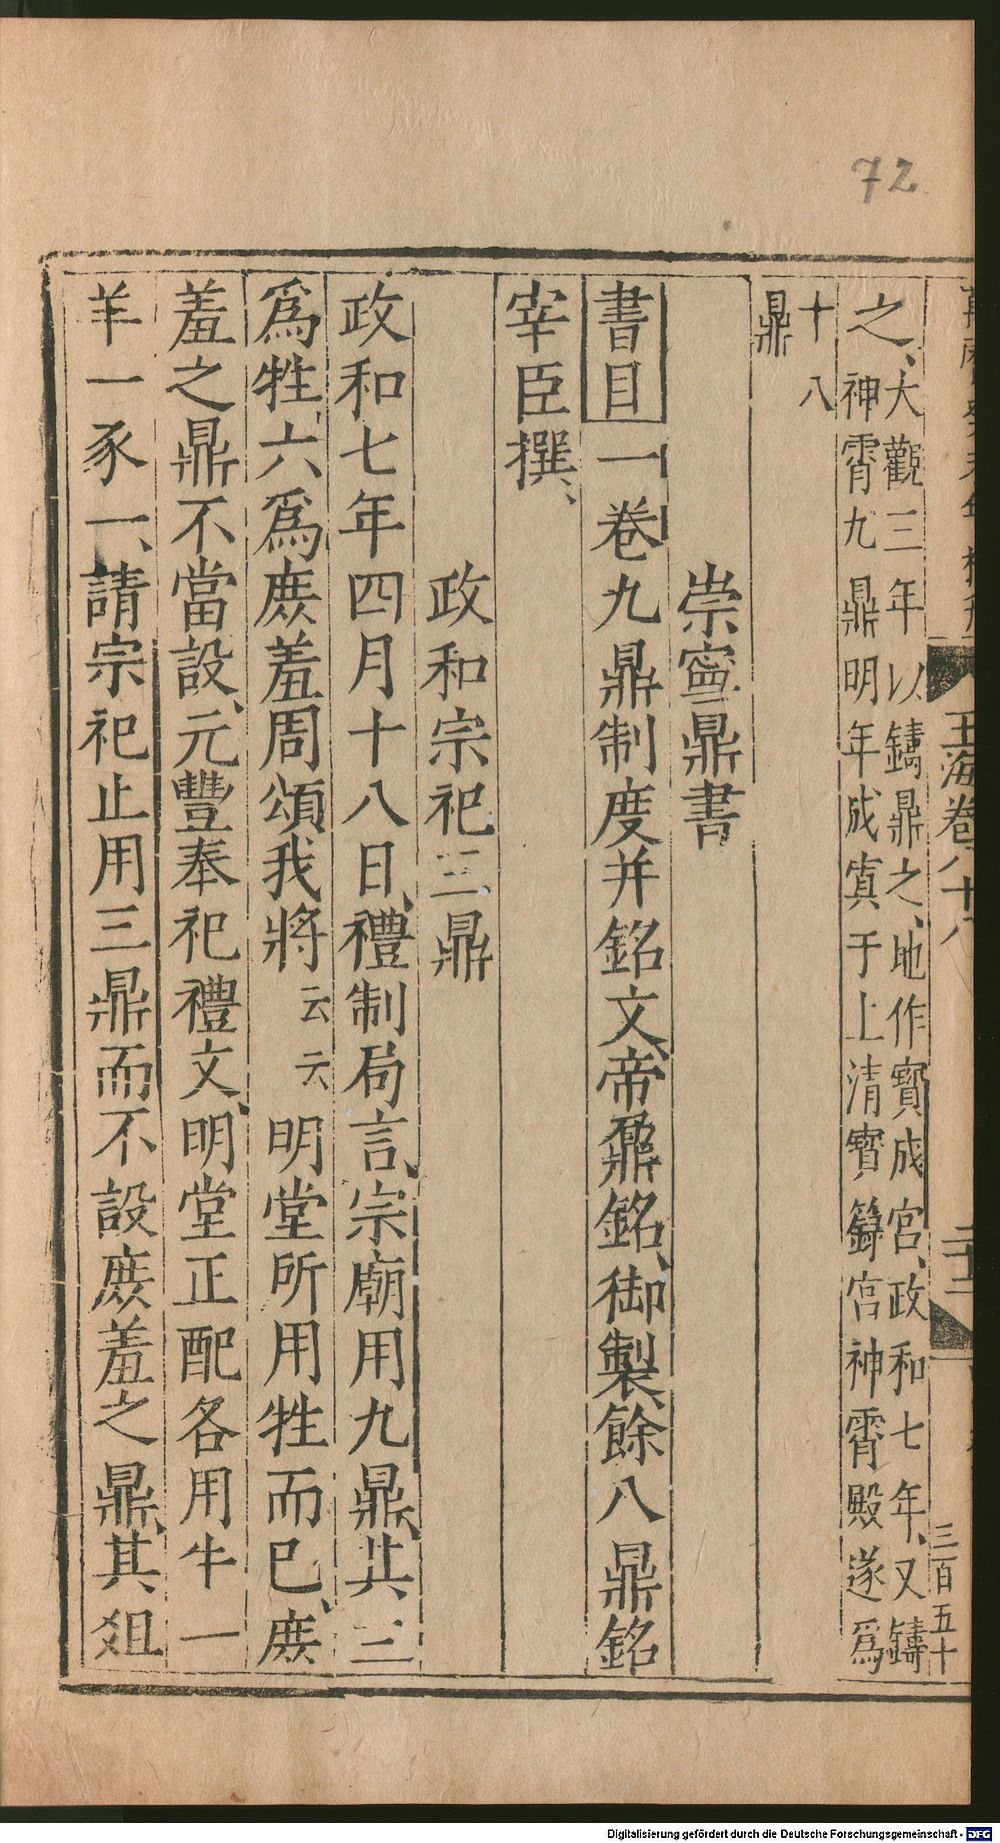 72
玉海卷八十八
二十二
三百五十
之、大觀三年以鑄鼎之、地作寶成宮、政和七年、又鑄
神霄九鼎明年成寘于上清寶籙宮神霄殿遂爲
十八
鼎
崇寧鼎書
書目一卷九鼎制度并銘文、帝鼐銘、御製、餘八鼎銘
宰臣撰、
政和宗祀三鼎
政和七年四月十八日、禮制局言、宗廟用九鼎、其三
爲牲、六爲庶羞周頌我將云云明堂所用牲而已、庶
羞之鼎不當設、元豐奉祀禮文、明堂正配各用牛一
羊一豕一、請宗祀止用三鼎而不設庶羞之鼎、其俎
Digitalisierung gefördert durch die Deutsche Forschungsgemeinschaft - DFG